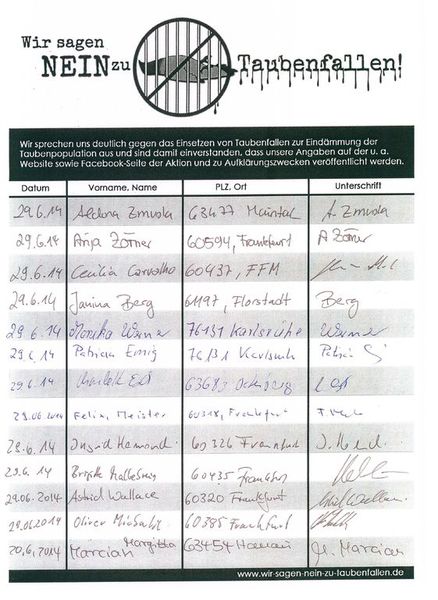 Wir sagen
NEIN zu Taubenfallen!
Wir sprechen uns deutlich gegen das Einsetzen von Taubenfallen zur Eindämmung der
Taubenpopulation aus und sind damit einverstanden, dass unsere Angaben auf der u. a.
Website sowie Facebook-Seite der Aktion und zu Aufklärungszwecken veröffentlicht werden.
Datum Vorname, Name PLZ, Ort Unterschrift
29.6.14 Aldona Zmuda 63477 Maintal A. Zmuda
29.6.14 Anja Zörner 60594, Frankfurt A Zörner
29.6.14 Cecilia Carvalho 60437, FFM
29.6.14 Janina Berg 61197, Florstadt Berg
29.6.14 Monika Werner 76131 Karlsruhe Werner
29.6.14 Patricia Emig 76131 Karlsruhe
29.6.14 63683
29.06.2014 Felix Meister 60318, Frankfurt
29.6.14 Ingrid 60326 Frankfurt
29.6.14 Brigitte 60435 Frankfurt
29.06.2014 Astrid Wallace 60320 Frankfurt
29.06.2014 Oliver 60385 Frankfurt
20.6.2014 Marcian Margitta 63454 Hanau M. Marcian
www.wir-sagen-nein-zu-taubenfallen.de